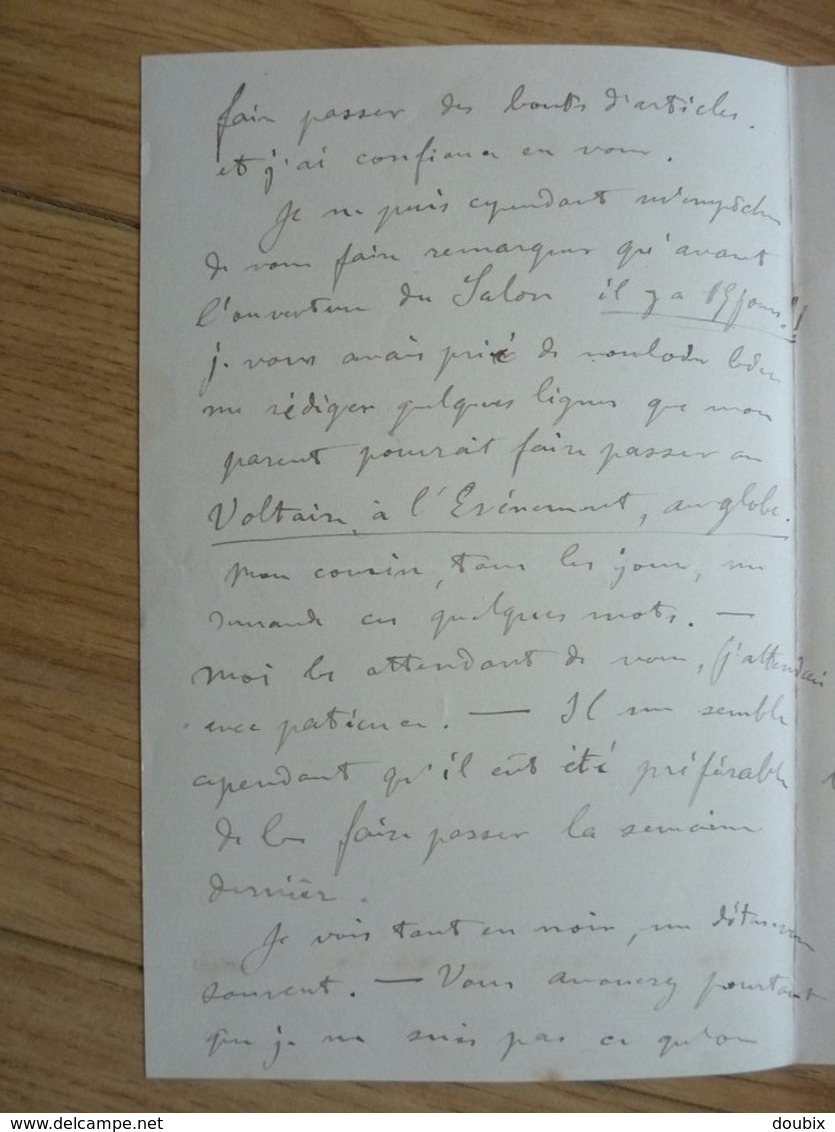 faire passer des bouts d'articles.
et j'ai confiance en vous.
Je ne puis cependant m'empêcher
de vous faire remarquer qu'avant
l'ouverture du Salon il y a 15 jours!!
je vous avais prié de vouloir bien
me rédiger quelques lignes que mon
parent pourrait faire passer au
Voltaire, à l'Evénement, au globe.
Mon cousin, tous les jours, me
demande ces quelques mots. —
Moi les attendant de vous, j'attendais
avec patience. — Il me semble
cependant qu'il eût été préférable
de les faire passer la semaine
dernière.
Je vois tout en noir, me dites-vous
souvent. — Vous avouerez pourtant
que je ne suis pas ce qu'on
delcampe.net
doubix